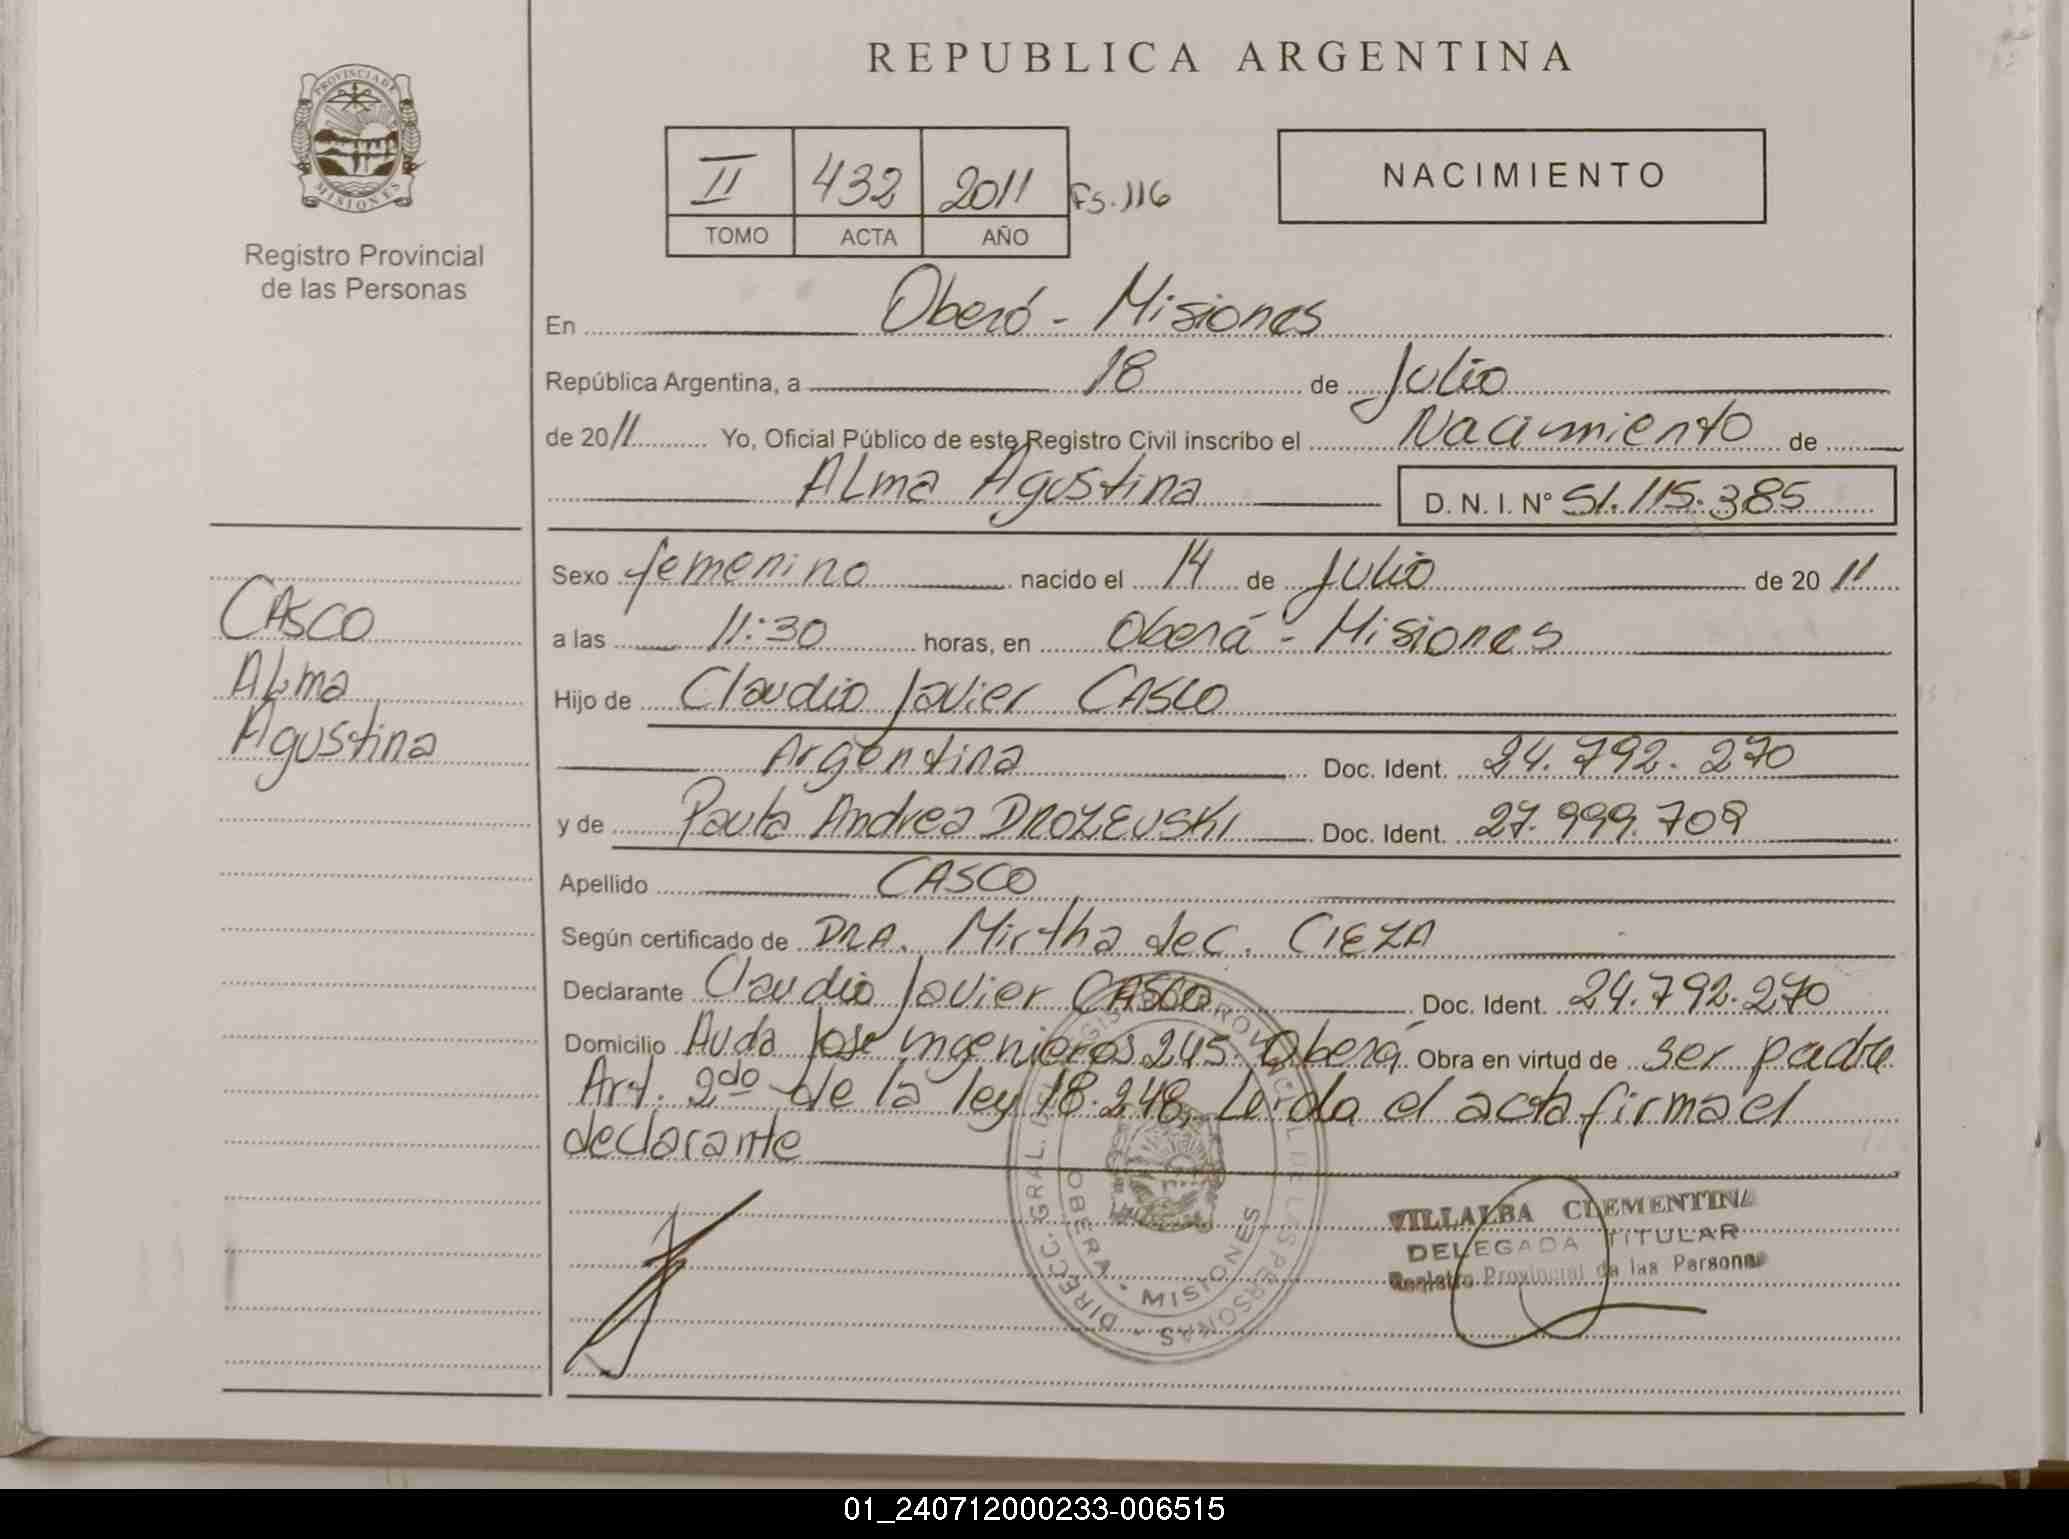 REPUBLICA ARGENTINA
PROVINCIA DE
MISIONES
Registro Provincial
de las Personas
II 432 2011 Fs. 116
TOMO ACTA AÑO
NACIMIENTO
En Oberá - Misiones
República Argentina, a 18 de Julio
de 2011 Yo, Oficial Público de este Registro Civil inscribo el Nacimiento de
ALma Agustina D. N. I. Nº 51.115.385
Sexo femenino nacido el 14 de Julio de 20 11
a las 11:30 horas, en Oberá - Misiones
Hijo de Claudio Javier CASCO
Argentina Doc. Ident. 24.792.270
y de Paula Andrea DROZEUSKI Doc. Ident. 27.999.709
Apellido CASCO
Según certificado de DRA. Mirtha del C. CIEZA
Declarante Claudio Javier CASCO Doc. Ident. 24.792.270
Domicilio Avda Jose ingenieros 245. Oberá Obra en virtud de ser padre
Art. 2do de la ley 18.248, Leida el acta firma el
declarante
CASCO
ALma
Agustina
DIRECC. GRAL. DEL REGISTRO PROVINCIAL DE LAS PERSONAS
OBERA • MISIONES
VILLALBA CLEMENTINA
DELEGADA TITULAR
Registro Provincial de las Personas
01_240712000233-006515